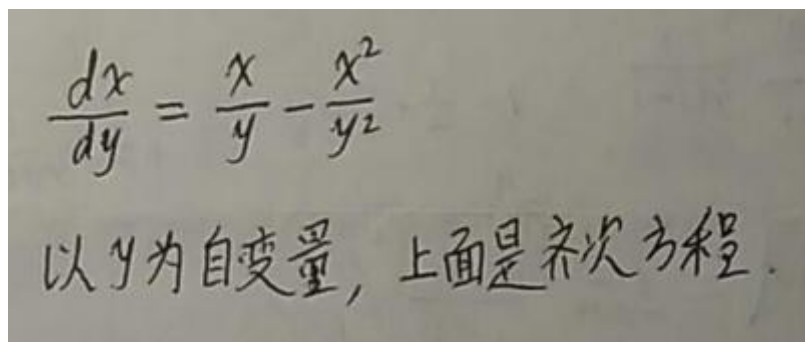 dx/dy = x/y - x²/y²
以y为自变量, 上面是齐次方程.